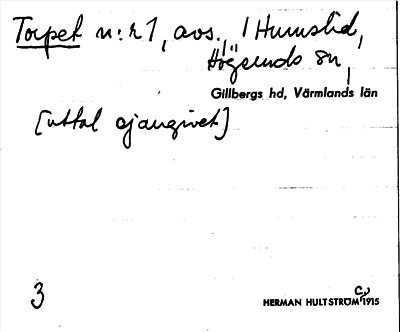 Torpet n:r 1, avs., / Humstid,
Högeruds sn,
Gillbergs hd, Värmlands län
[uttal ej angivet]
3
HERMAN HULTSTRÖM C:a 1915